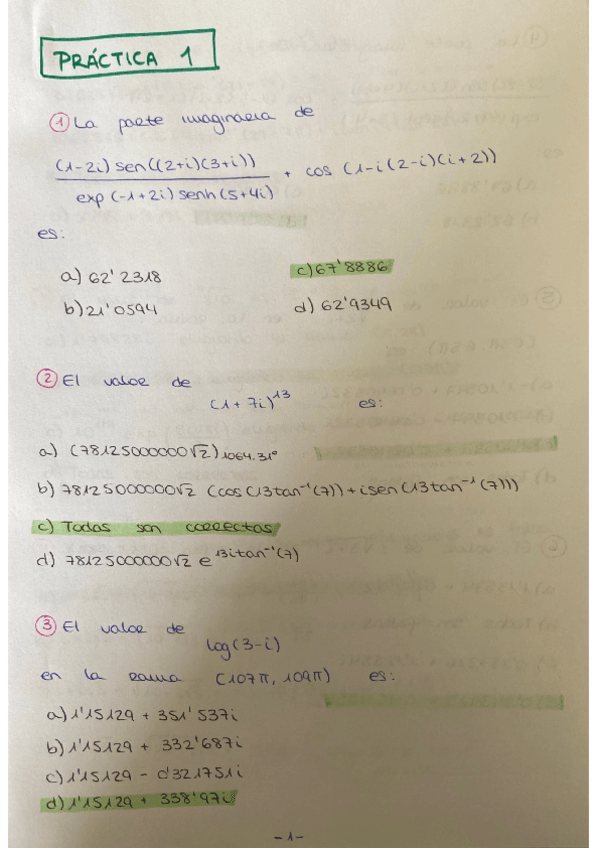 PRÁCTICA 1
① La parte imaginaria de
(1-2i) sen((2+i)(3+i)) / exp(-1+2i) senh(5+4i) + cos (1-i(2-i)(i+2))
es:
a) 62'2318
c) 67'8886
b) 21'0594
d) 62'9349
② El valor de
(1+7i)¹³ es:
a) (78125000000√2)₁₀₆₄.₃₁º
b) 78125000000√2 (cos(13tan⁻¹(7))+isen(13tan⁻¹(7)))
c) Todas son correctas
d) 78125000000√2 e^13itan⁻¹(7)
③ El valor de
log(3-i)
en la rama (107π, 109π) es:
a) 1'15129 + 351'537i
b) 1'15129 + 332'687i
c) 1'15129 - 0'321751i
d) 1'15129 + 338'97i
-1-